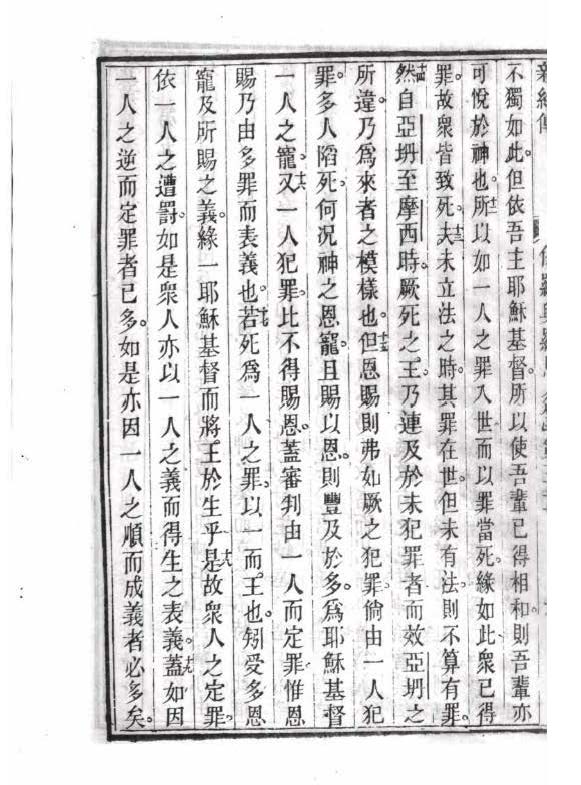 不獨如此。但依吾主耶穌基督。所以使吾輩已得相和。則吾輩亦
可悅於神也。十二所以如一人之罪入世而以罪當死。緣如此衆已得
罪。故衆皆致死。十三夫未立法之時。其罪在世。但未有法。則不算有罪。
十四然自亞坍至摩西時。厥死之王。乃連及於未犯罪者而效亞坍之
所違。乃爲來者之模樣也。十五但恩賜則弗如厥之犯罪。倘由一人犯
罪。多人陷死。何況神之恩寵。且賜以恩。則豐及於多。爲耶穌基督
一人之寵。十六又一人犯罪。比不得賜恩。蓋審判由一人而定罪。惟恩
賜乃由多罪而表義也。十七若死爲一人之罪。以一而王也。矧受多恩
寵及所賜之義。緣一耶穌基督而將王於生乎。十八是故衆人之定罪。
依一人之遭罸。如是衆人亦以一人之義而得生之表義。十九蓋如因
一人之逆而定罪者已多。如是亦因一人之順而成義者必多矣。